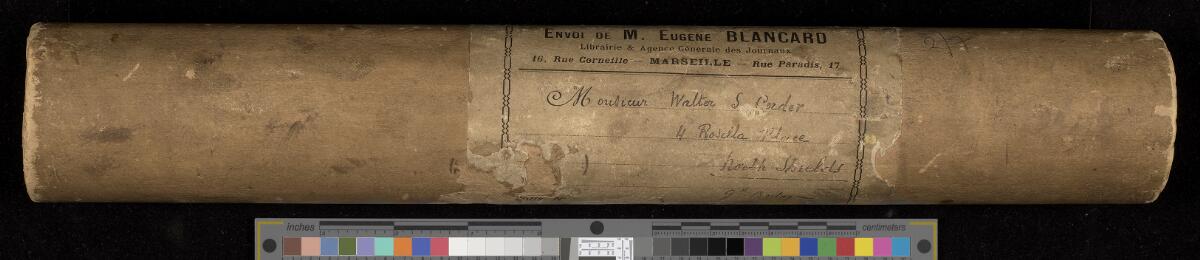 ENVOI DE M. EUGENE BLANCARD
Librairie & Agence Générale des Journaux
16, Rue Corneille — MARSEILLE — Rue Paradis, 17
Monsieur Walter S Corder
4 Rosella Place
North Shields
inches
centimeters